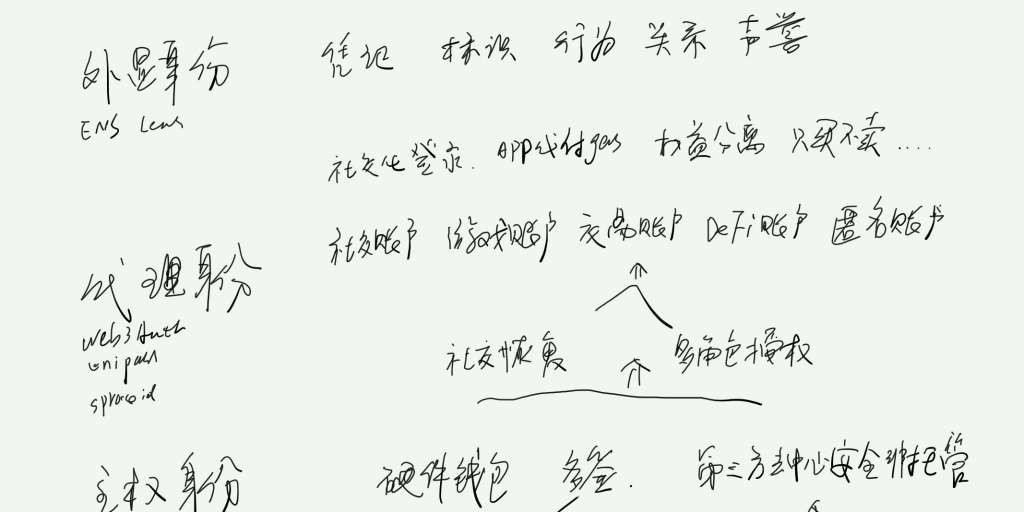 外显身份 凭记 标识 行为 关系 声誉
ENS Lens
社交化登录. APP代付gas 权益分离 只买不卖....
社交账户 游戏账户 交易账户 DeFi账户 匿名账户
代理身份
web3Auth
unipass
社交恢复 多角色授权
主权身份 硬件钱包 多签. 第三方中心安全 托管